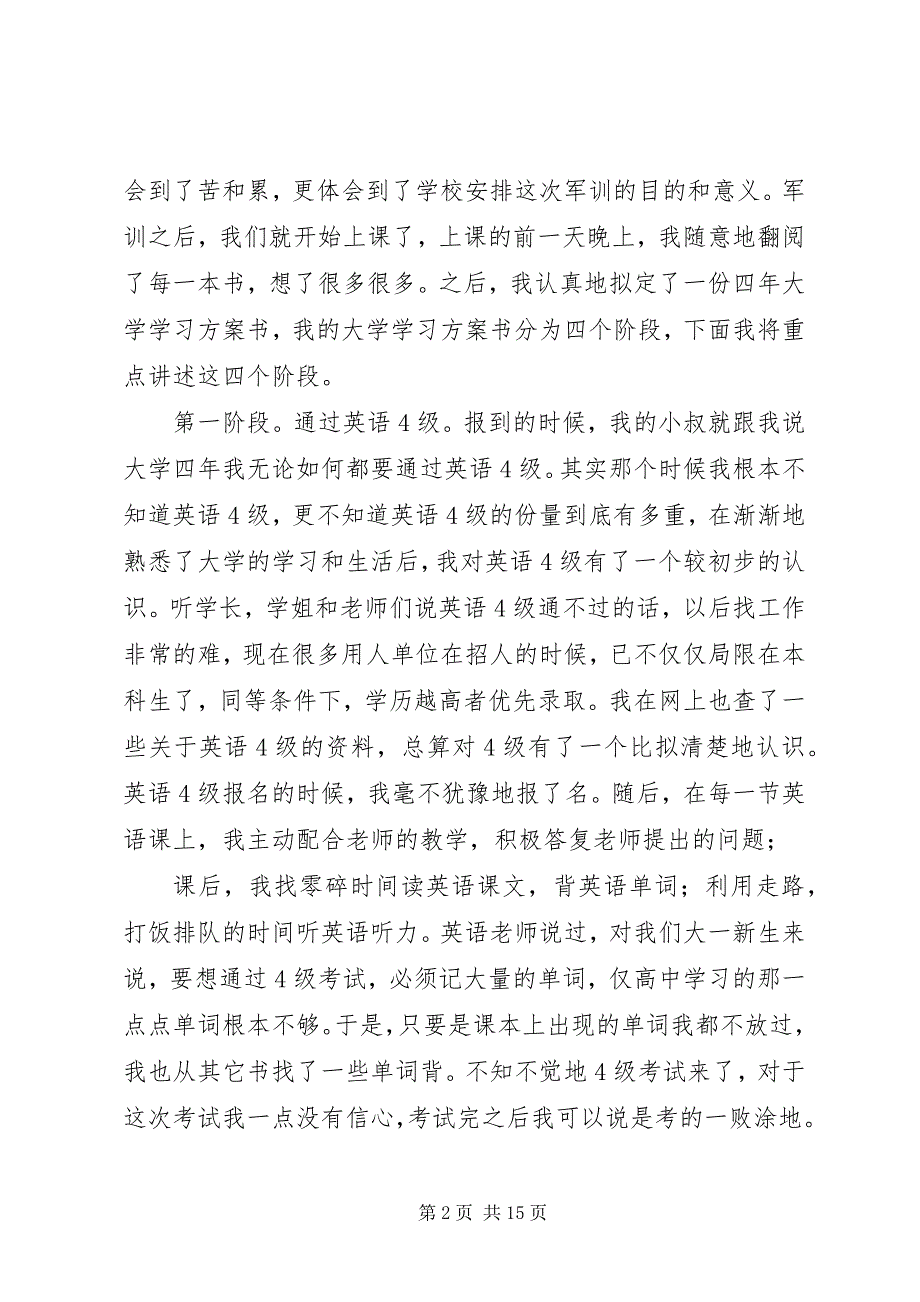 会到了苦和累，更体会到了学校安排这次军训的目的和意义。军
训之后，我们就开始上课了，上课的前一天晚上，我随意地翻阅
了每一本书，想了很多很多。之后，我认真地拟定了一份四年大
学学习方案书，我的大学学习方案书分为四个阶段，下面我将重
点讲述这四个阶段。
第一阶段。通过英语 4 级。报到的时候，我的小叔就跟我说
大学四年我无论如何都要通过英语 4 级。其实那个时候我根本不
知道英语 4 级，更不知道英语 4 级的份量到底有多重，在渐渐地
熟悉了大学的学习和生活后，我对英语 4 级有了一个较初步的认
识。听学长，学姐和老师们说英语 4 级通不过的话，以后找工作
非常的难，现在很多用人单位在招人的时候，已不仅仅局限在本
科生了，同等条件下，学历越高者优先录取。我在网上也查了一
些关于英语 4 级的资料，总算对 4 级有了一个比拟清楚地认识。
英语 4 级报名的时候，我毫不犹豫地报了名。随后，在每一节英
语课上，我主动配合老师的教学，积极答复老师提出的问题；
课后，我找零碎时间读英语课文，背英语单词；利用走路，
打饭排队的时间听英语听力。英语老师说过，对我们大一新生来
说，要想通过 4 级考试，必须记大量的单词，仅高中学习的那一
点点单词根本不够。于是，只要是课本上出现的单词我都不放过，
我也从其它书找了一些单词背。不知不觉地 4 级考试来了，对于
这次考试我一点没有信心，考试完之后我可以说是考的一败涂地。
第 2 页 共 15 页